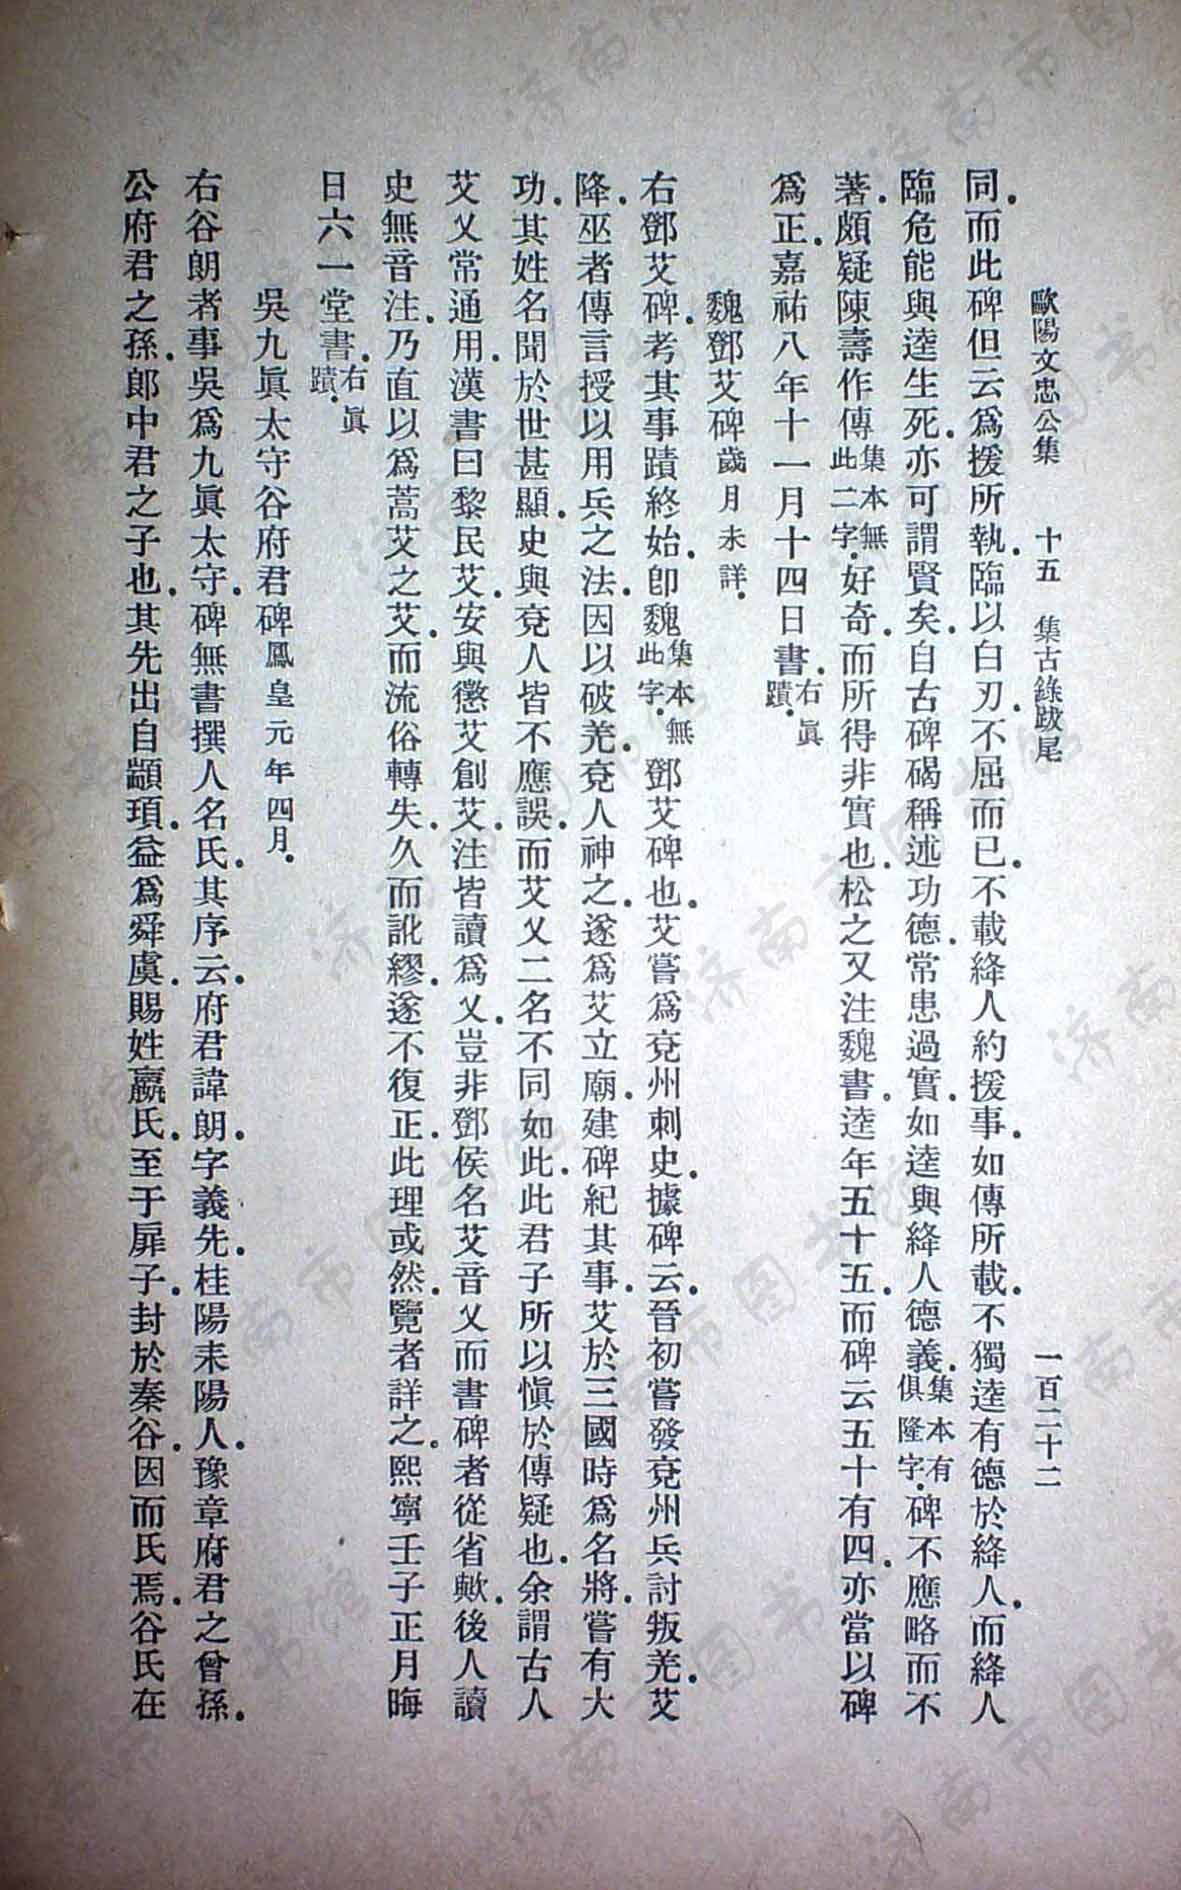 歐陽文忠公集　十五　集古錄跋尾　一百二十二
同．而此碑但云爲援所執．臨以白刃．不屈而已．不載絳人約援事．如傳所載．不獨逵有德於絳人．而絳人
臨危能與逵生死．亦可謂賢矣．自古碑碣稱述功德．常患過實．如逵與絳人德義．集本有俱隆字．碑不應略而不
著．頗疑陳壽作傳集本無此二字．好奇．而所得非實也．松之又注魏書．逵年五十五．而碑云五十有四．亦當以碑
爲正．嘉祐八年十一月十四日書．右眞蹟．
魏鄧艾碑歲月未詳．
右鄧艾碑．考其事蹟終始．卽魏集本無此字．鄧艾碑也．艾嘗爲兗州刺史．據碑云．晉初嘗發兗州兵討叛羌．艾
降．巫者傳言授以用兵之法．因以破羌．兗人神之．遂爲艾立廟．建碑紀其事．艾於三國時爲名將．嘗有大
功．其姓名聞於世甚顯．史與兗人皆不應誤．而艾乂二名不同如此．此君子所以愼於傳疑也．余謂古人
艾乂常通用．漢書曰黎民艾．安與懲艾創艾．注皆讀爲乂．豈非鄧侯名艾音乂而書碑者從省歟．後人讀
史無音注．乃直以爲蒿艾之艾．而流俗轉失．久而訛繆．遂不復正．此理或然．覽者詳之．熙寧壬子正月晦
日六一堂書．右眞蹟．
吳九眞太守谷府君碑鳳皇元年四月．
右谷朗者事吳爲九眞太守．碑無書撰人名氏．其序云．府君諱朗．字義先．桂陽耒陽人．豫章府君之曾孫．
公府君之孫．郎中君之子也．其先出自顓頊．益爲舜虞．賜姓嬴氏．至于扉子．封於秦谷．因而氏焉．谷氏在